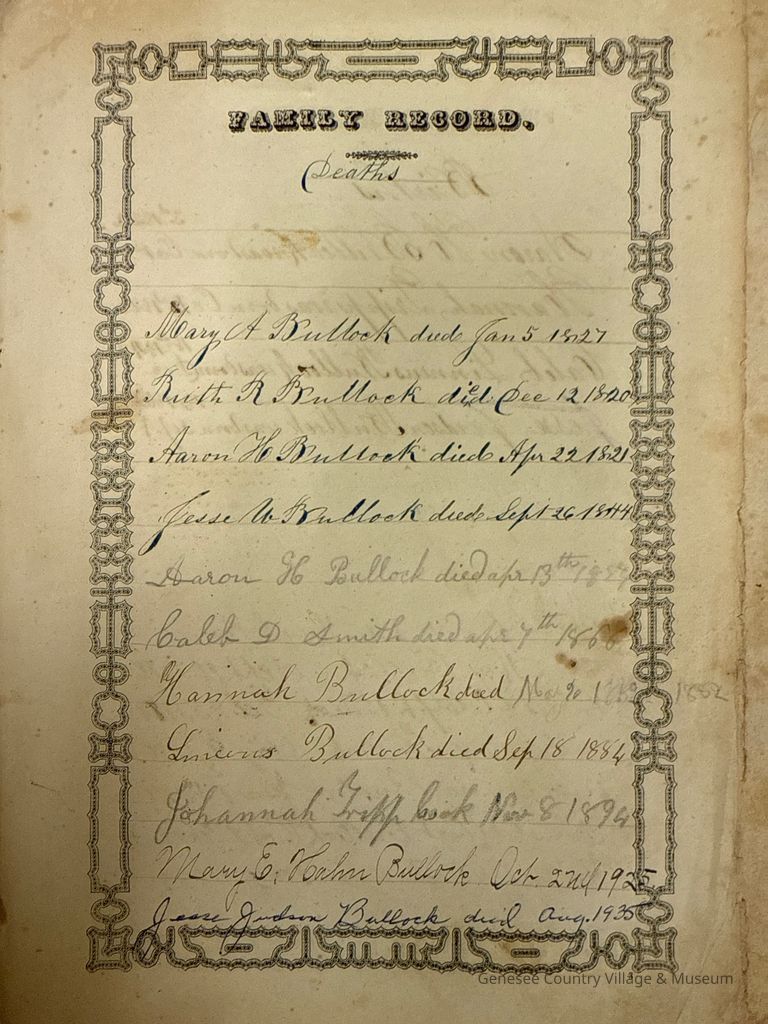 FAMILY RECORD.
Deaths
Mary A Bullock died Jan 5 1827
Ruth R Bullock died Dec 12 1820
Aaron H Bullock died Apr 22 1821
Jesse W Bullock died Sept 26 1844
Aaron H Bullock died apr 13th
Caleb D Smith died apr 7th 1866
Hannah Bullock died 1882
Bullock died Sep 18 1884
Johannah Tripp Cook Nov 8 1894
Mary E. Hahn Bullock Oct. 22nd 1925
Jesse Judson Bullock died Aug. 1935
Genesee Country Village & Museum